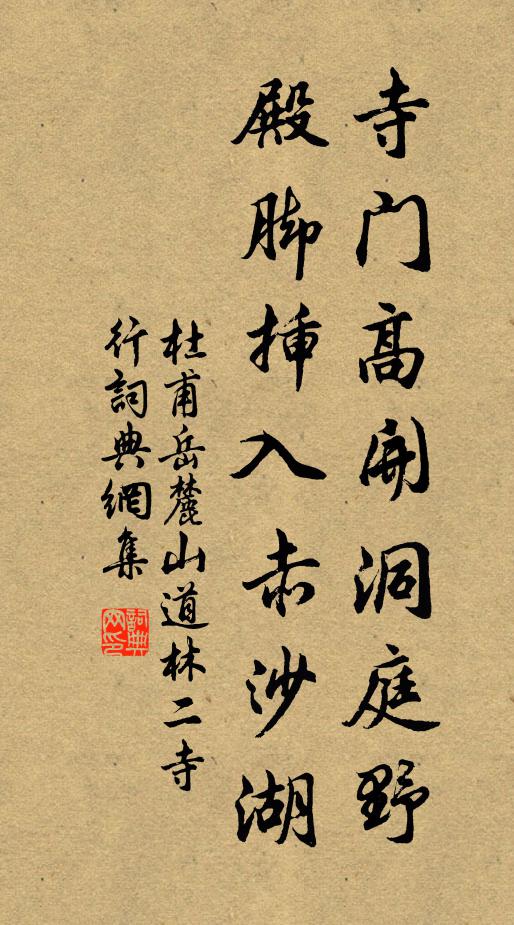 寺门高開洞庭野
殿脚插入赤沙湖
杜甫岳麓山道林二寺
行詞典網集
詞典网印